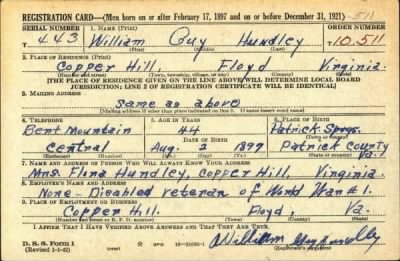 REGISTRATION CARD—(Men born on or after February 17, 1897 and on or before December 31, 1921)
SERIAL NUMBER 1. NAME (Print) ORDER NUMBER
443 William Guy Hundley 10,511
(First) (Middle) (Last)
2. PLACE OF RESIDENCE (Print)
Copper Hill, Floyd Virginia.
(Number and street) (Town, township, village, or city) (County) (State)
[THE PLACE OF RESIDENCE GIVEN ON THE LINE ABOVE WILL DETERMINE LOCAL BOARD
JURISDICTION; LINE 2 OF REGISTRATION CERTIFICATE WILL BE IDENTICAL]
3. MAILING ADDRESS
same as above
[Mailing address if other than place indicated on line 2. If same insert word same]
4. TELEPHONE 5. AGE IN YEARS 6. PLACE OF BIRTH
Bent Mountain 44 Patrick Spngs.
DATE OF BIRTH (Town or county)
Central Aug. 2 1897 Patrick County
Va.
(Exchange) (Number) (Mo.) (Day) (Yr.) (State or country)
7. NAME AND ADDRESS OF PERSON WHO WILL ALWAYS KNOW YOUR ADDRESS
Mrs. Hundley, Copper Hill, Virginia.
8. EMPLOYER'S NAME AND ADDRESS
None - Disabled veteran of World War #1.
9. PLACE OF EMPLOYMENT OR BUSINESS
Copper Hill. Floyd, Va.
(Number and street or R. F. D. number) (Town) (County) (State)
I AFFIRM THAT I HAVE VERIFIED ABOVE ANSWERS AND THAT THEY ARE TRUE.
D. S. S. Form 1
(Revised 1-1-42) (over) GPO William Guy Hundley
(Registrant's signature)